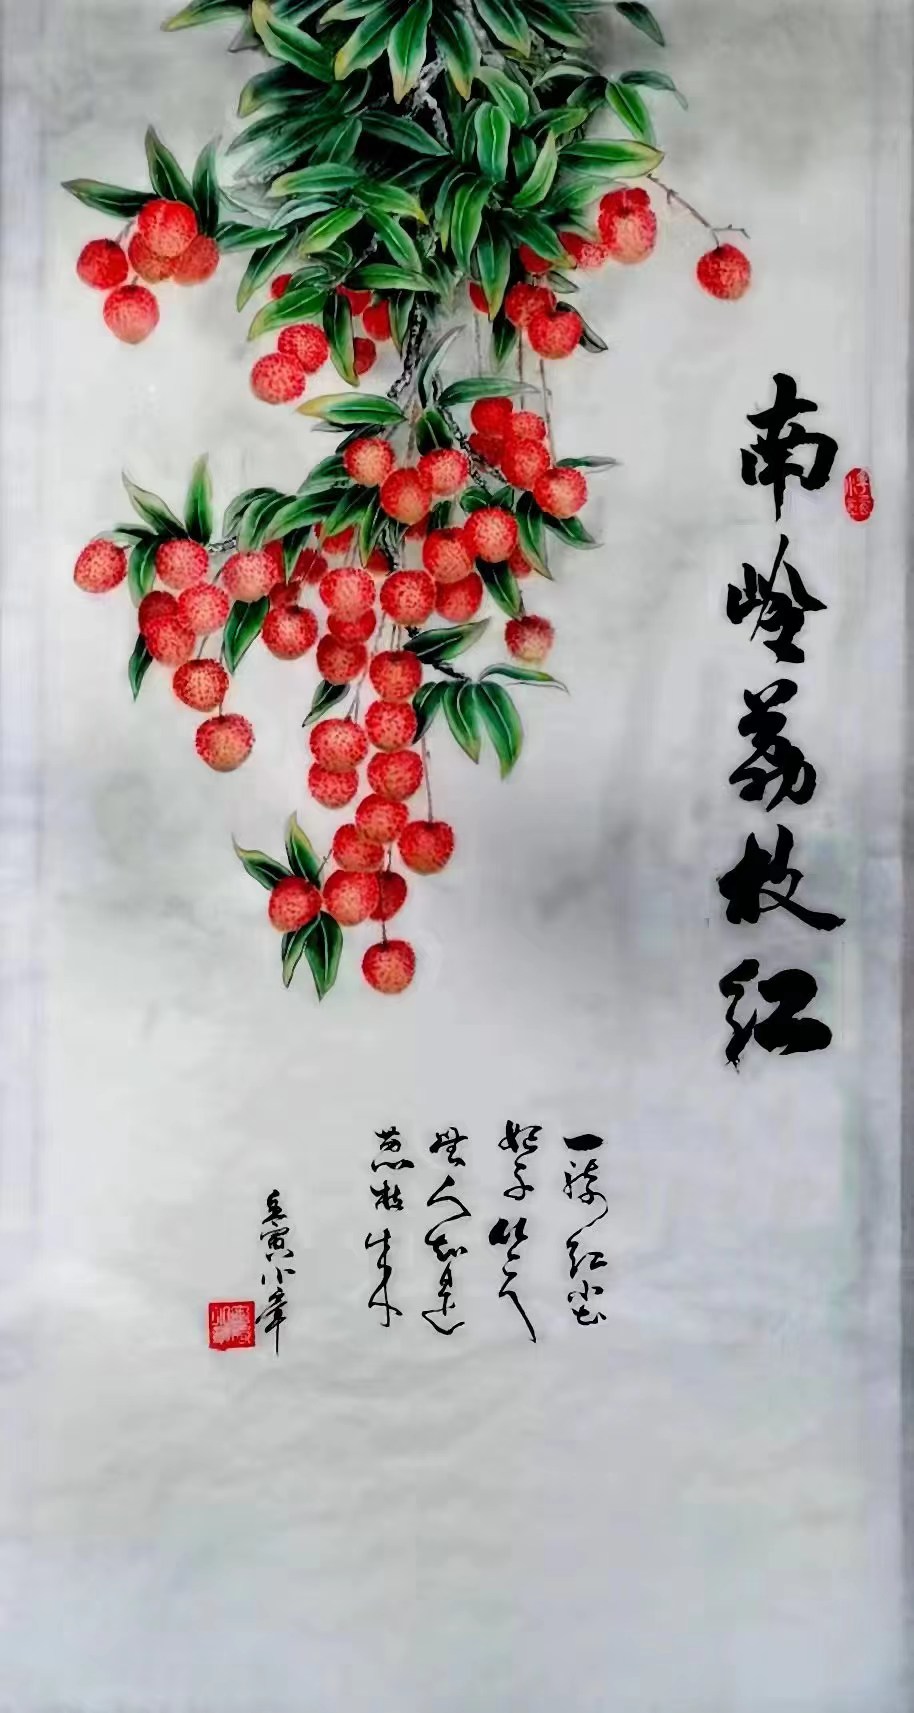 南岭荔枝红
一骑红尘
妃子笑
無人知是
荔枝来
壬寅小章